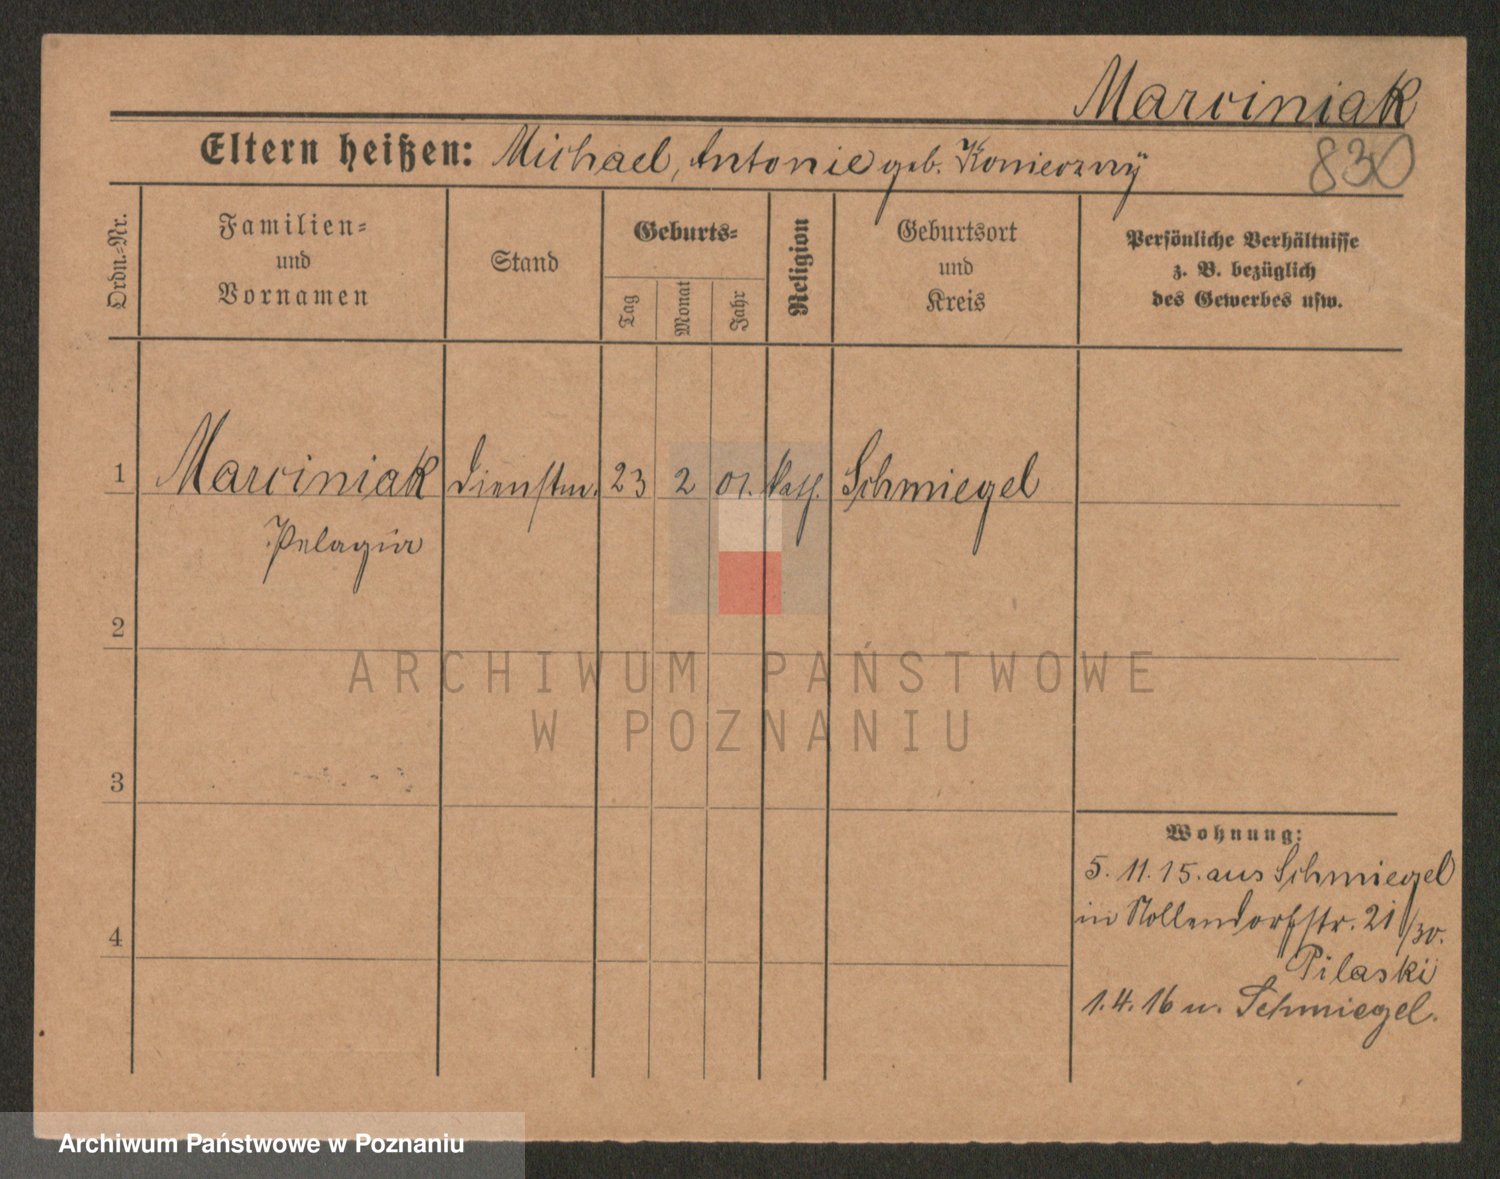 Marciniak
830
Eltern heißen: Michael, Antonie geb. Konieczny
Ordn.-Nr.
Familien-
und
Vornamen
Stand
Geburts-
Tag
Monat
Jahr
Religion
Geburtsort
und
Kreis
Persönliche Verhältnisse
z. B. bezüglich
des Gewerbes usw.
1 Marciniak Dienstm. 23 2 01. kath. Schmiegel
Pelagia
2
3
4
Wohnung:
5. 11. 15. aus Schmiegel
in Nollendorfstr. 21/30.
Pilaski
1. 4. 16 n. Schmiegel.
ARCHIWUM PAŃSTWOWE
W POZNANIU
Archiwum Państwowe w Poznaniu